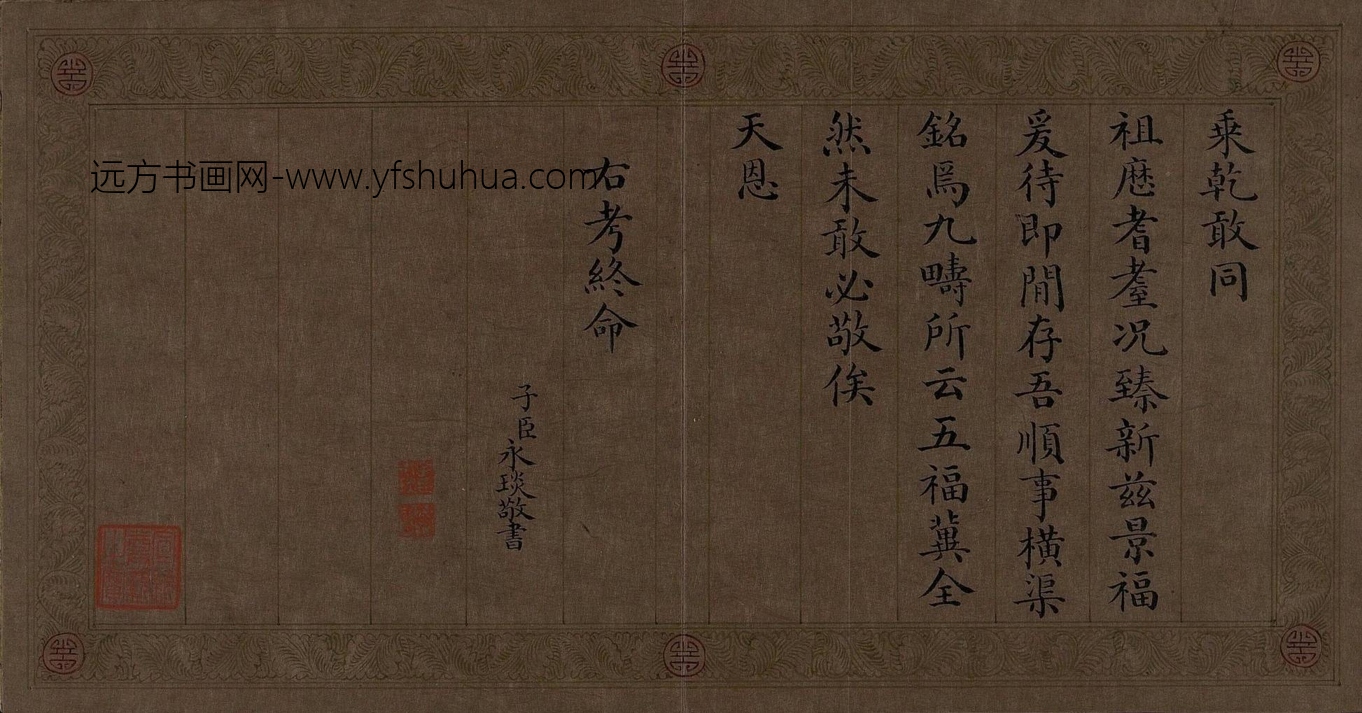 乗乾敢同
祖歴耆耋况臻新兹景福
爰待即閒存吾順事横渠
銘爲九疇所云五福冀全
然未敢必敬俟
天恩
右考終命
子臣永琰敬書
远方书画网-www.yfshuhua.com